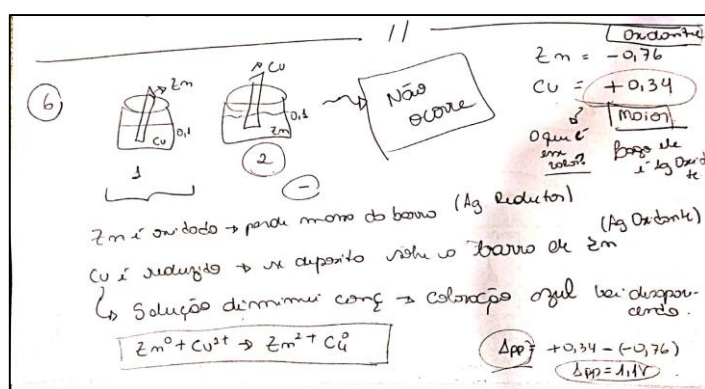 11
Oxidante
Zn = -0,76
Cu = +0,34
Maior
O que é
Logo ele
é ag Oxidante
6
Zn
0,1
Cu
1
Cu
0,1
Zn
2
-
Não
ocorre
Zn é oxidado → perde massa da barra (Ag Redutor)
Cu é reduzido → se deposita sobre a barra de Zn (Ag Oxidante)
↳ Solução diminui conç → coloração azul vai desapare-
cendo.
Zn⁰ + Cu²⁺ → Zn²⁺ + Cu⁰
Δpp = +0,34 - (-0,76)
Δpp = 1,1V